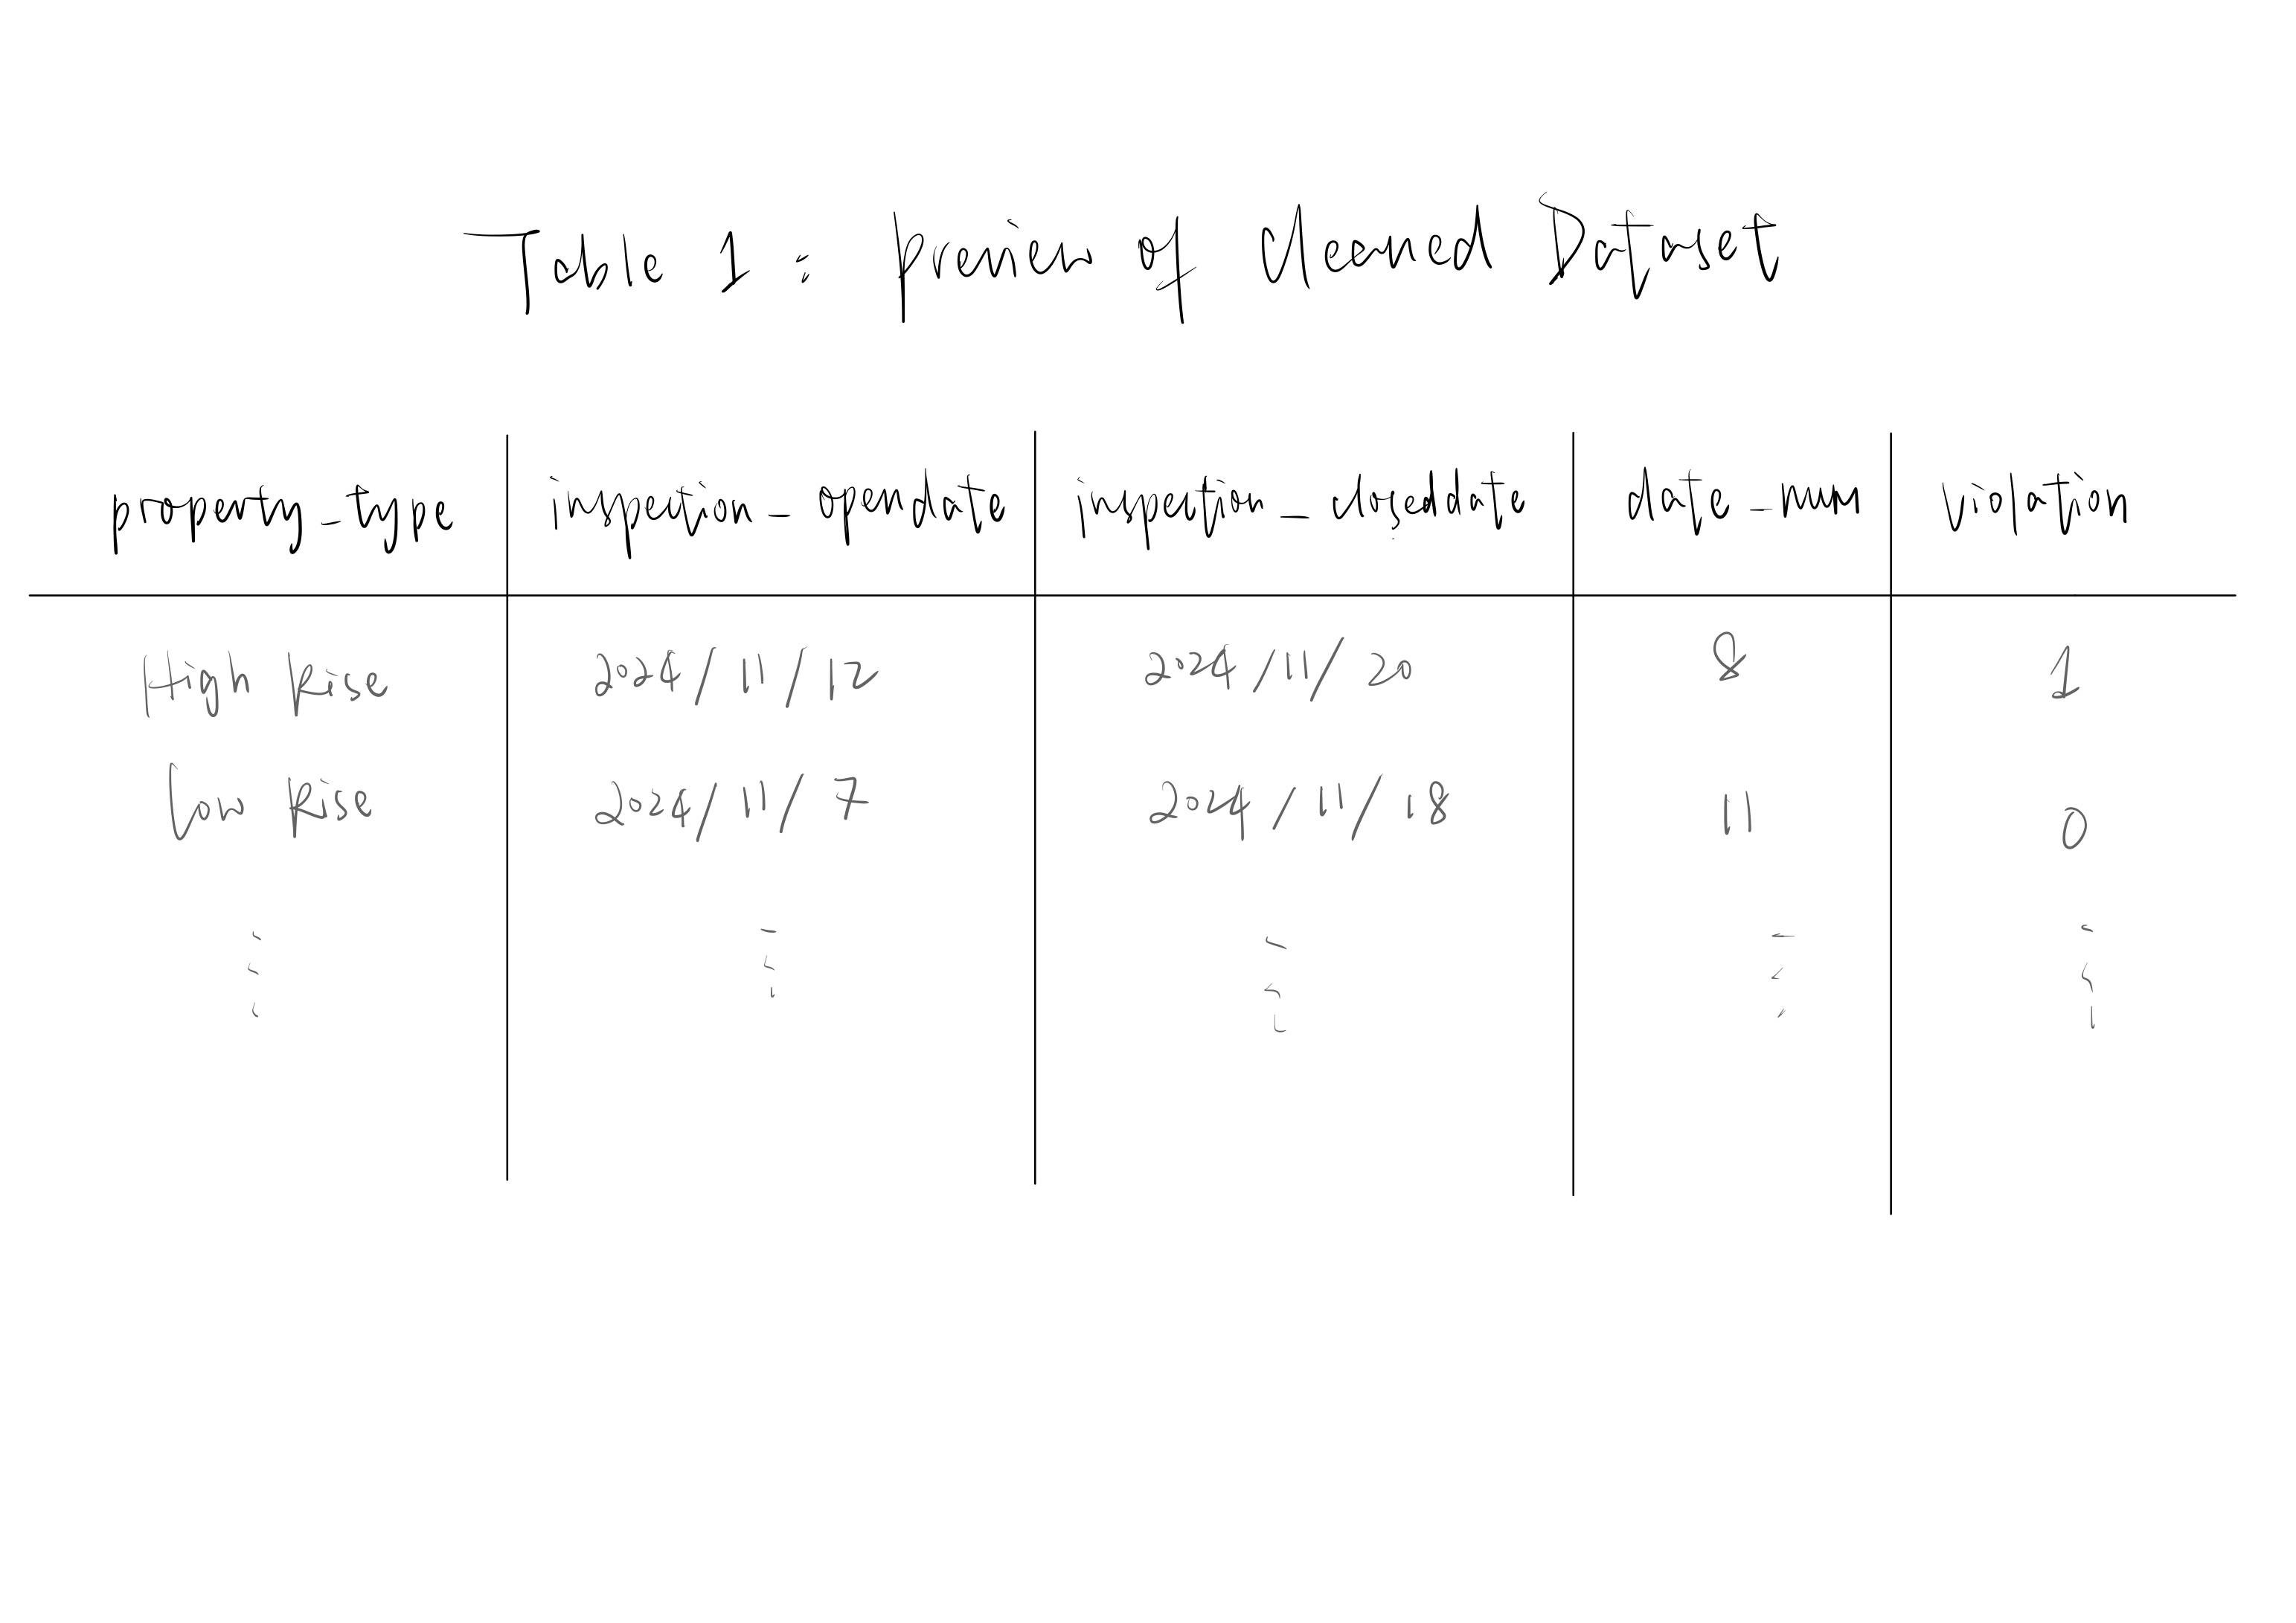 Table 1 : Preview of Cleaned Dataset
property_type inspection_opendate inspection_closeddate date_num violation
High Rise 2024/11/12 2024/11/20 8 1
Low Rise 2024/11/7 2024/11/18 11 0